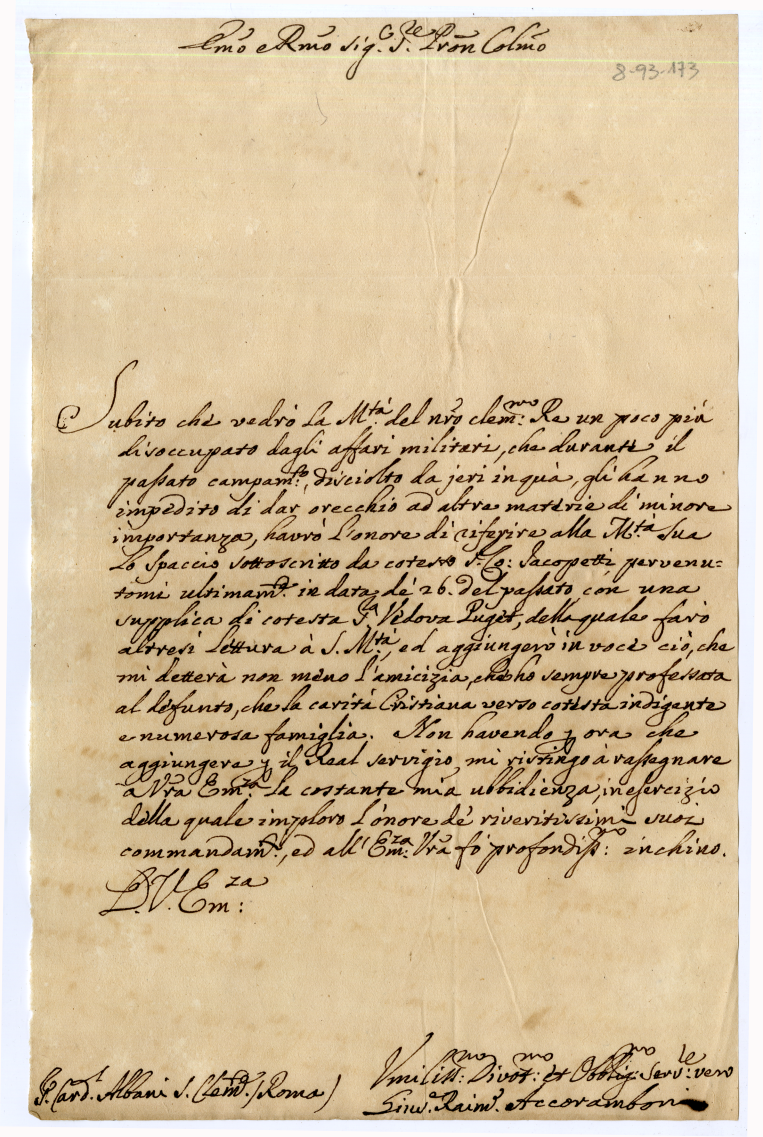 Emo e Rmo sig.r S.re Pron Colmo
8-93-173
Subito che vedrò La M.tà del nr̃o clem.mo Re un poco più
disoccupato dagli affari militari, che durante il
passato campam.to, disciolto da jeri in quà, gli hanno
impedito di dar orecchio ad altre materie di minore
importanza, havrò l'onore di riferire alla M.tà Sua
Lo Spaccio sottoscritto da cotesto S.r Co: Jacopetti pervenu=
tomi ultimam.te in data de' 26. del passato, con una
supplica di cotesta S.ra Vedova Puget, della quale farò
altresì Lettura à S. M.tà, ed aggiungerò in voce ciò, che
mi detterà non meno l'amicizia, che ho sempre professata
al defunto, che la carità Cristiana verso cotesta indigente
e numerosa famiglia. Non havendo p ora che
aggiungere p il Real servigio, mi ristringo à rassegnare
a Vr̃a Em.za La costante mia ubbidienza, in esercizio
della quale imploro l'onore de' riveritissimi suoi
commandam.ti, ed all' Em.za Vr̃a fò profondiss.mo inchino.
D. V. Em:za
S.r Card.l Albani S. Clem.te (Roma)
Umiliss.mo Divot.mo et Obblig.mo Serv.le vero
Raim.o Accoramboni